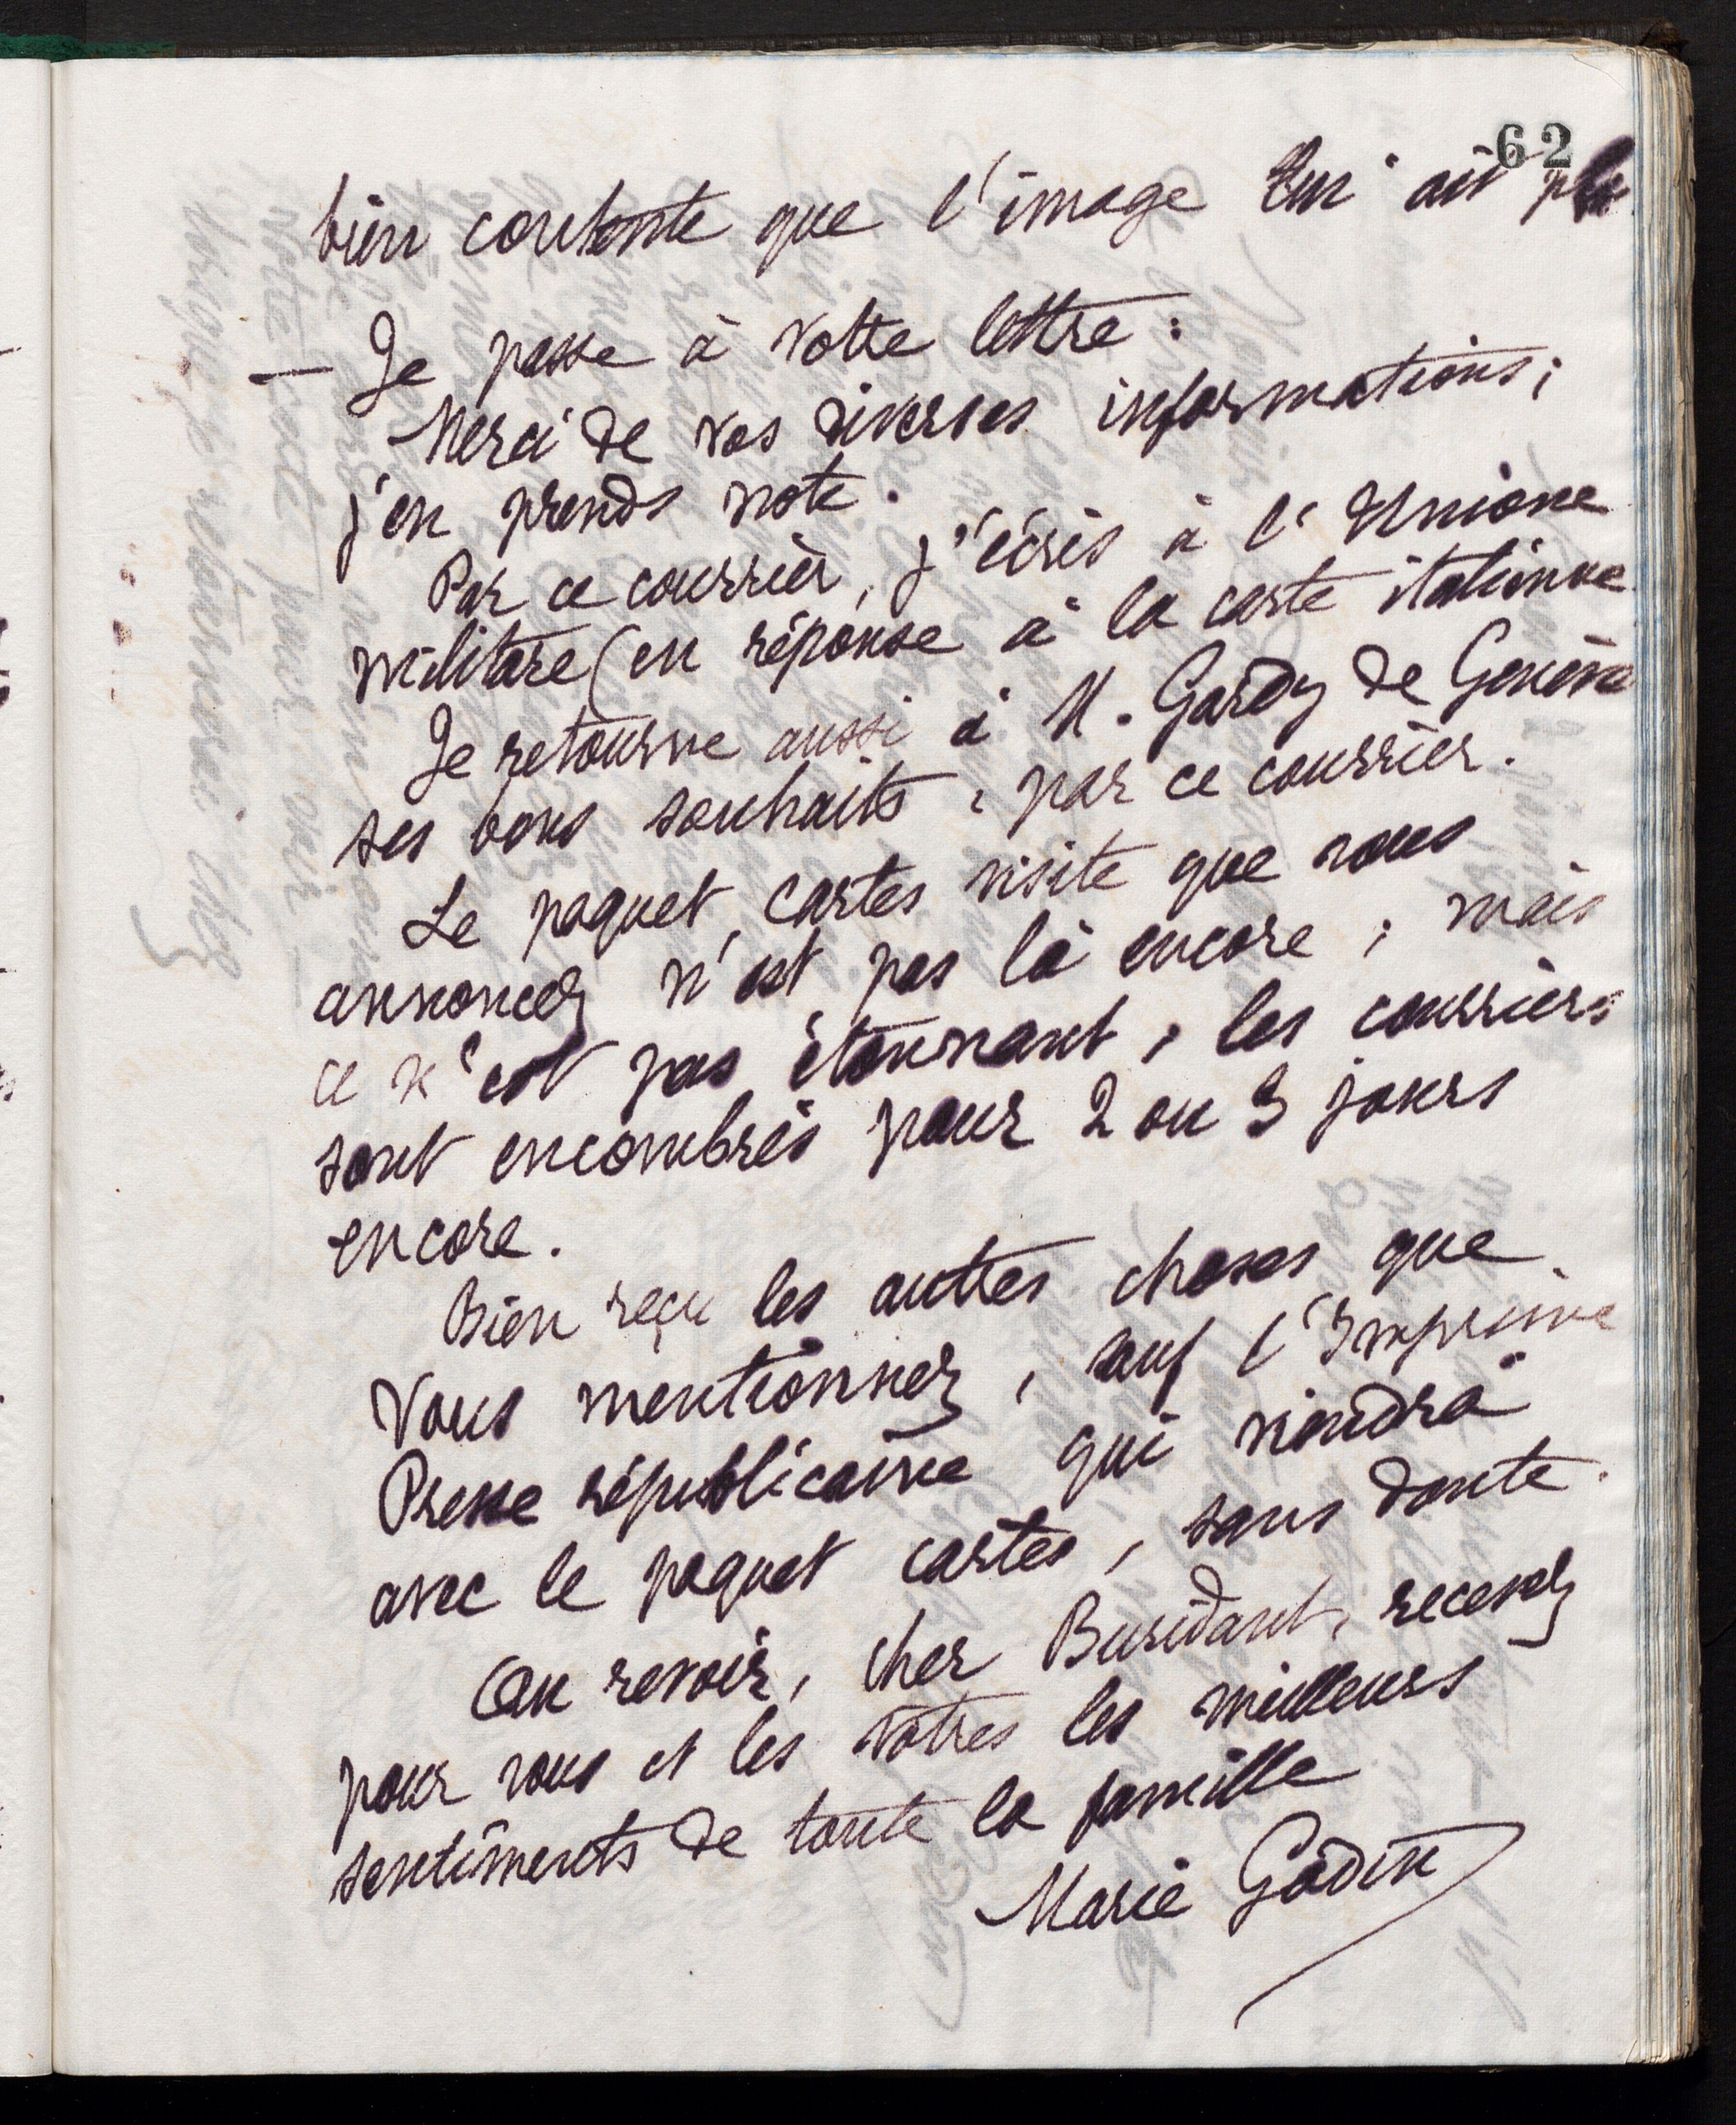 62
bien contente que l'image lui ait plu
— Je passe à votre lettre :
Merci de vos diverses informations ;
j'en prends note.
Par ce courrier, j'écris à l'Unione
militare (en réponse à la carte italienne
Je retourne aussi à M. Gardy de Genève
ses bons souhaits, par ce courrier.
Le paquet, cartes visite que vous
annoncez n'est pas là encore ; mais
ce n'est pas étonnant, les courriers
sont encombrés pour 2 ou 3 jours
encore.
Bien reçu les autres choses que
vous mentionnez, sauf l'Imprimé
Presse républicaine qui viendra
avec le paquet cartes, sans doute.
Au revoir, cher Buridant, recevez
pour vous et les vôtres les meilleurs
sentiments de toute la famille
Marie Godin